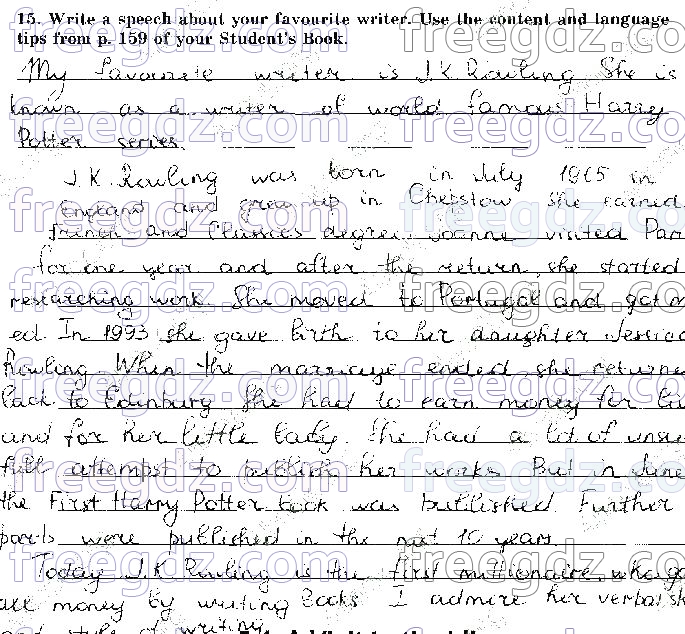 15. Write a speech about your favourite writer. Use the content and language
tips from p. 159 of your Student's Book.
My favourite writer is J.K. Rowling She is
known as a writer of world famous Harry
Potter series.
J.K. Rowling was born in July 1965 in
England and grew up in Chepstow She earned
french and Classics degree. Joanne visited Par
for one year and after the return, she started
researching work. She moved to Portugal and got m
ed. In 1993 she gave birth to her daughter Jessica
Rowling. When the marriage ended, she returne
back to Edinburg She had to earn money for
and for her little baby. She had a lot of unsu
full attempst to publish her works. But in June
the First Harry Potter book was published. Further
parts were published in the next 10 years.
Today J.K Rowling is the first multionaire, who
all money by writing books I admire her verbal sk
and style of writing